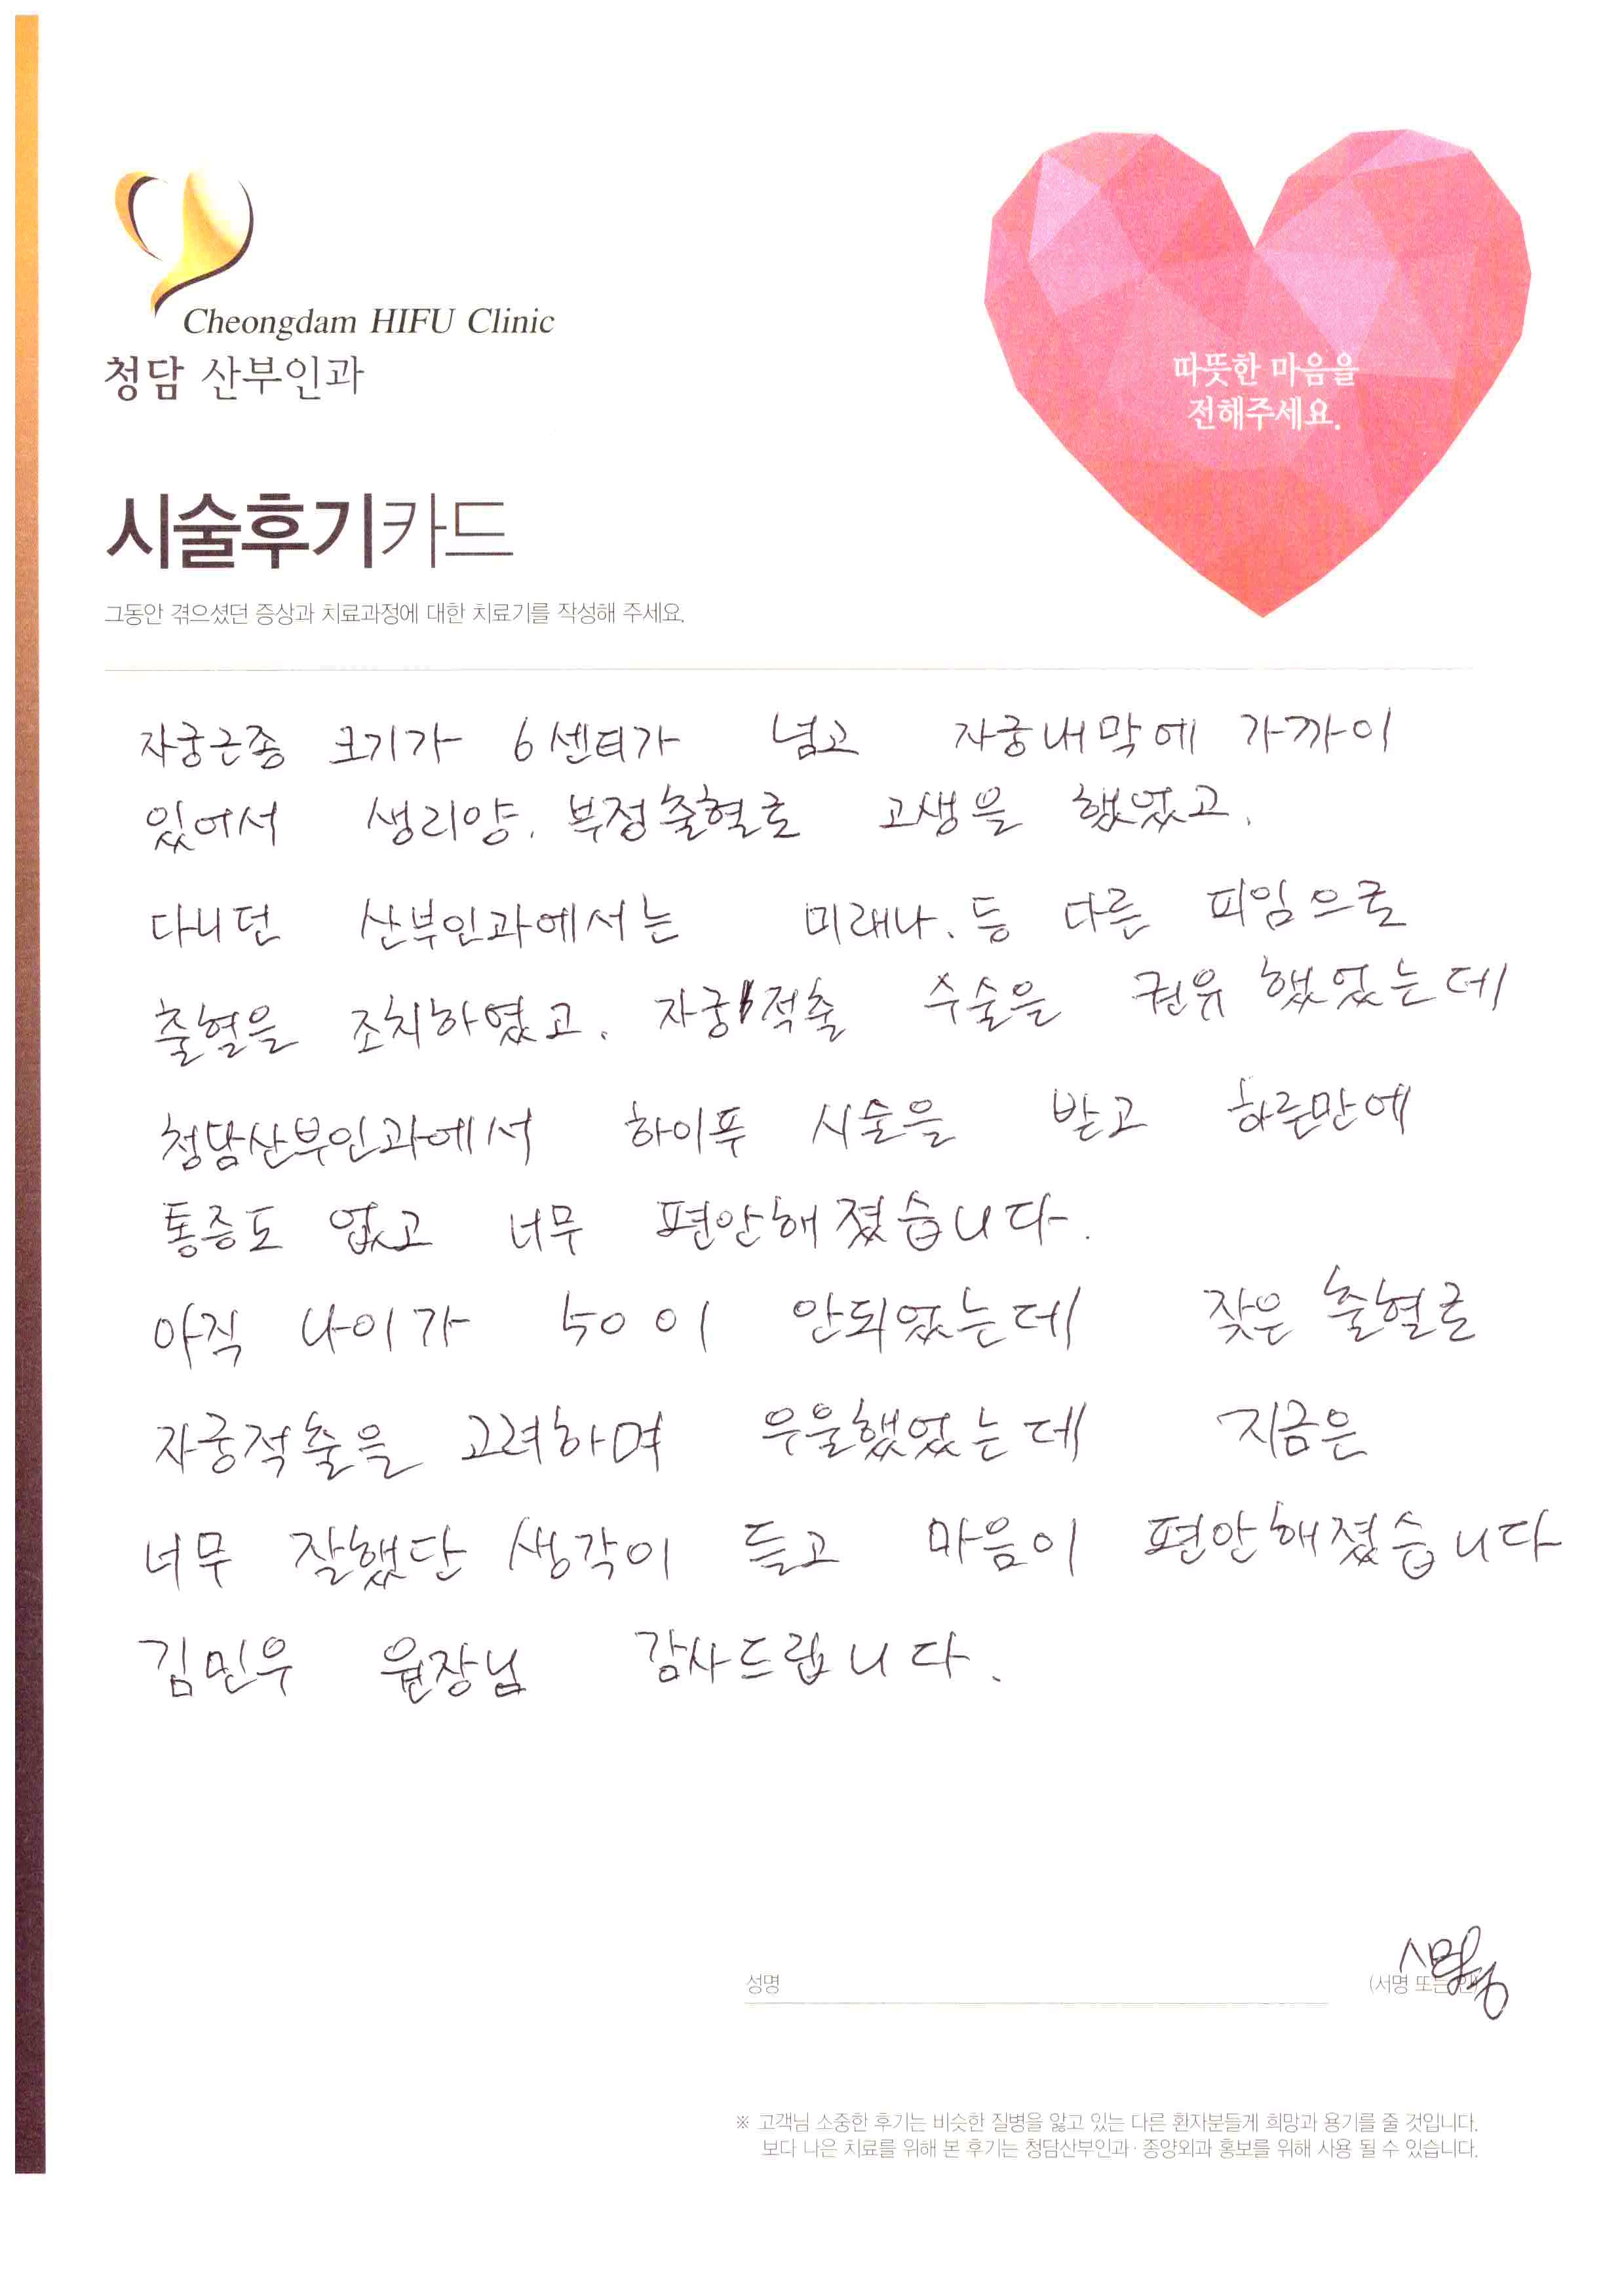 Cheongdam HIFU Clinic
청담 산부인과
따뜻한 마음을
전해주세요.
시술후기카드
그동안 겪으셨던 증상과 치료과정에 대한 치료기를 작성해 주세요.
자궁근종 크기가 6센티가 넘고 자궁내막에 가까이
있어서 생리양. 부정출혈로 고생을 했었고.
다니던 산부인과에서는 미래나.등 다른 피임으로
출혈을 조치하였고. 자궁적출 수술을 권유 했었는데
청담산부인과에서 하이푸 시술을 받고 하루만에
통증도 없고 너무 편안해졌습니다.
아직 나이가 50이 안되었는데 잦은 출혈로
자궁적출을 고려하며 우울했었는데 지금은
너무 잘했단 생각이 들고 마음이 편안해졌습니다
김민우 원장님 감사드립니다.
성명 (서명 또는
※ 고객님 소중한 후기는 비슷한 질병을 앓고 있는 다른 환자분들게 희망과 용기를 줄 것입니다.
보다 나은 치료를 위해 본 후기는 청담산부인과·종양외과 홍보를 위해 사용 될 수 있습니다.